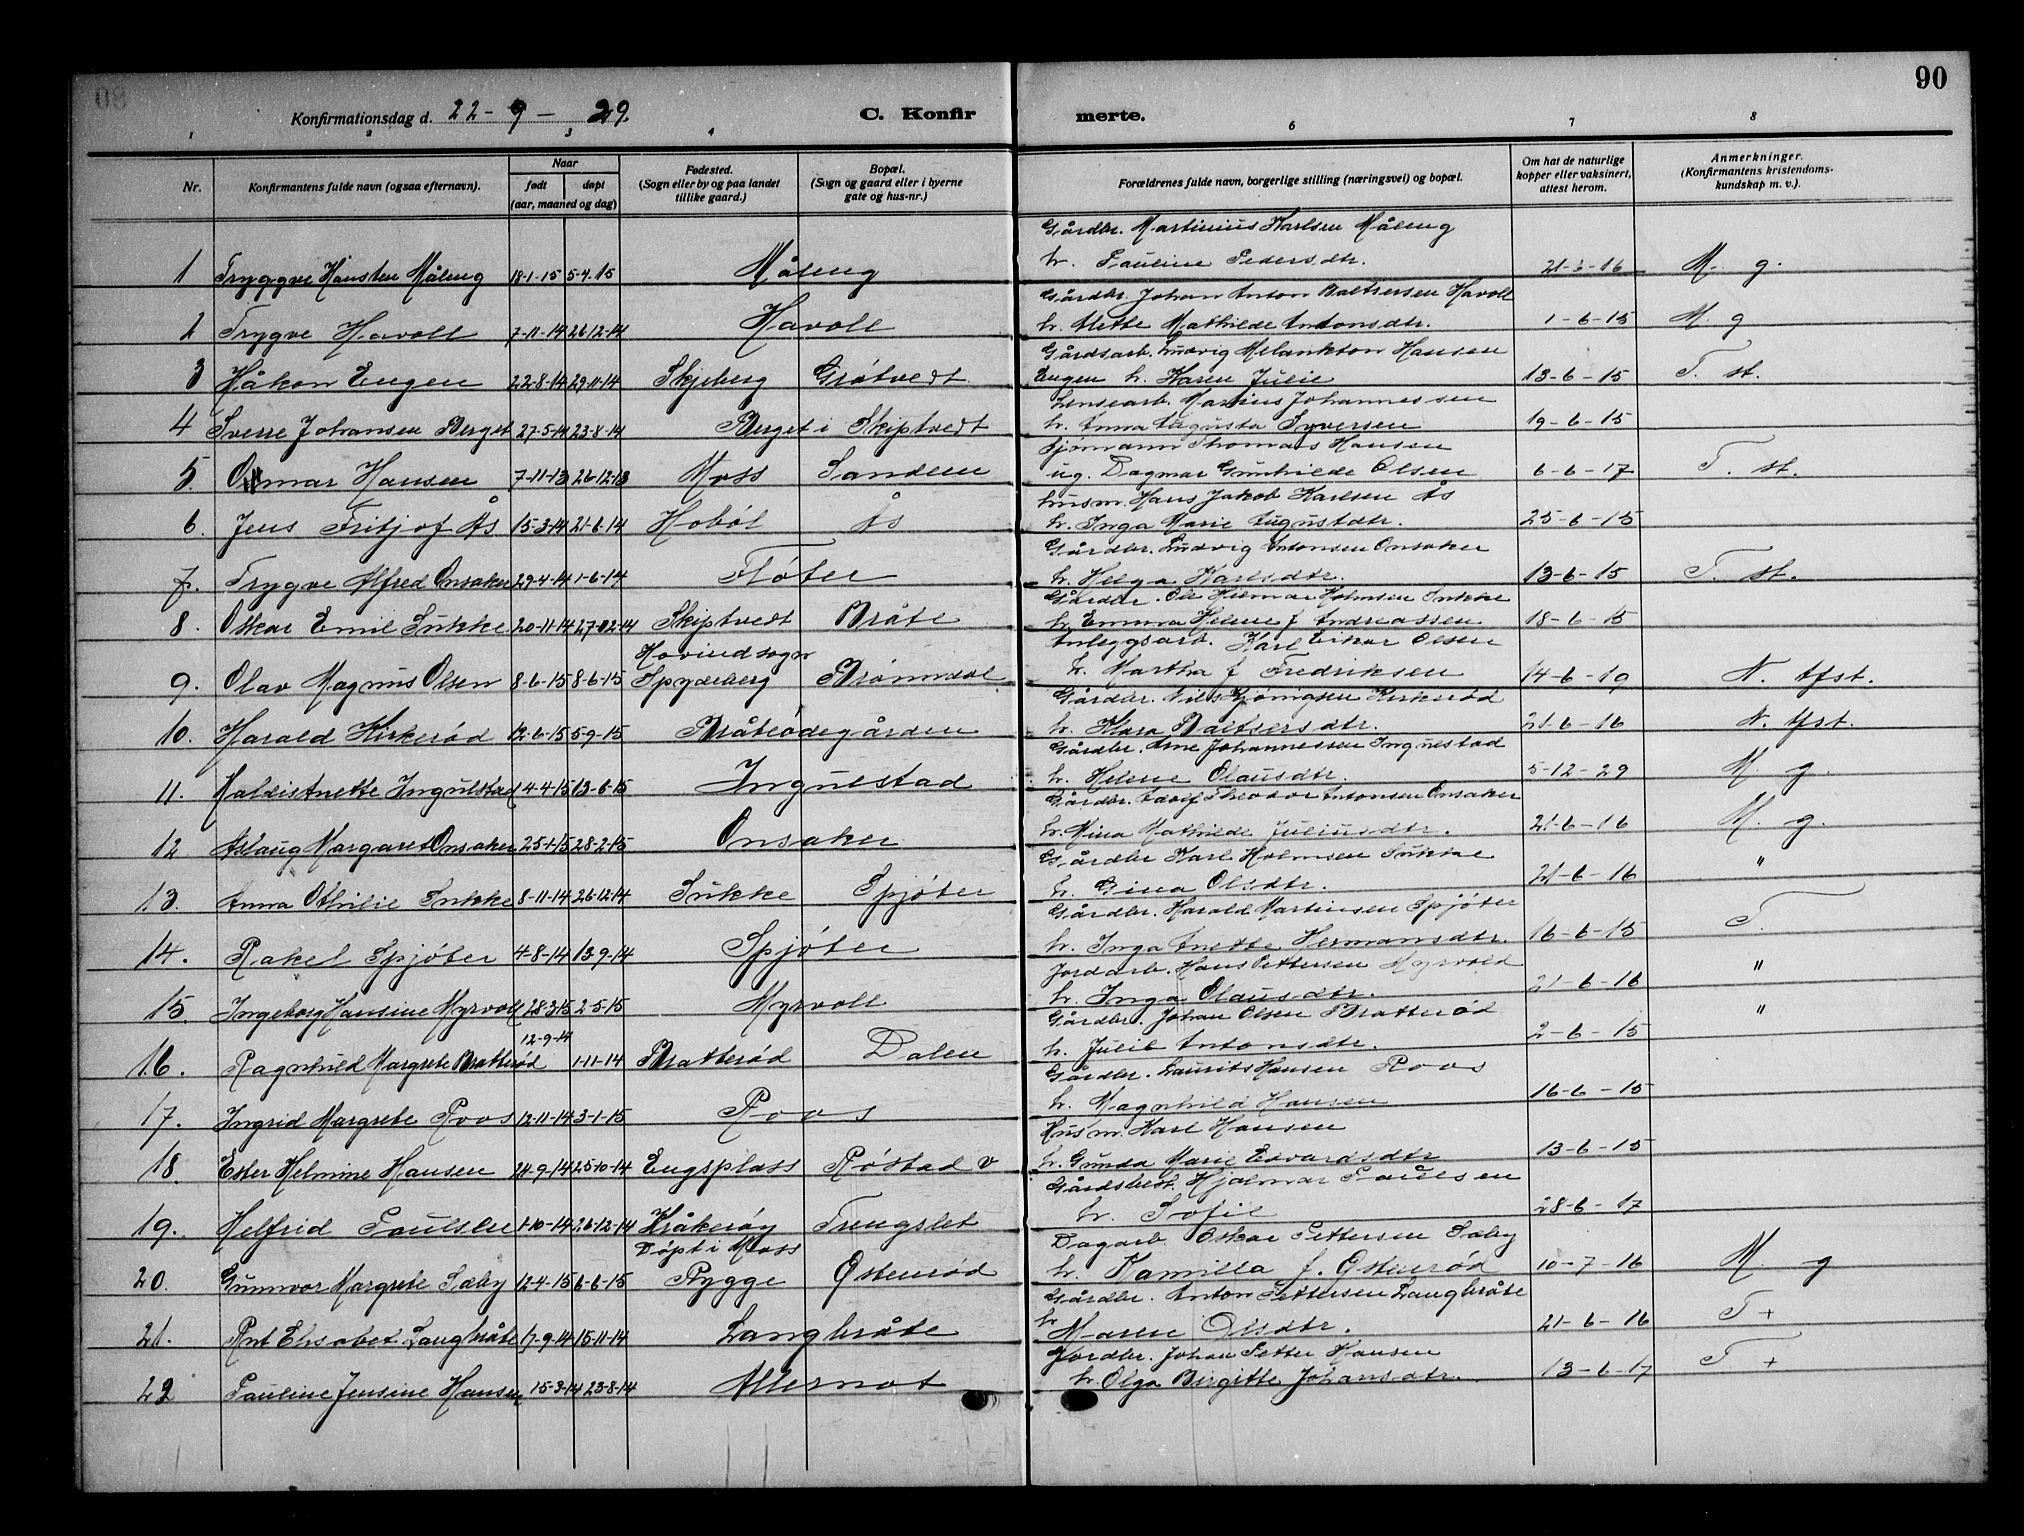 90
Konfirmationsdag d. 22-9-29.
C. Konfir merte.
1 2 3 4 6 7 8
Nr.
Konfirmantens fulde navn (ogsaa efternavn).
Naar
født døpt
(aar, maaned og dag)
Fødested.
(Sogn eller by og paa landet
tillike gaard.)
Bopæl.
(Sogn og gaard eller i byerne
gate og hus-nr.)
Forældrenes fulde navn, borgerlige stilling (næringsvei) og bopæl.
Om hat de naturlige
kopper eller vaksinert,
attest herom.
Anmerkninger.
(Konfirmantens kristendoms-
kundskap m. v.).
Gårdbr. Martinius Karlsen Måleng
1 Tryggve Hansten Måleng 18-1-15 5-4-15 Måleng h. Pauline Pedersdtr. 21-6-16 M. g.
Gårdbr. Johan Anton Baltsersen Havoll
2 Trygve Havoll 7-11-14 26-12-14 Havoll h. Mette Mathilde Antonsdtr. 1-6-15 M. g
Gårdsarb. Ludvig Melankton Hansen
3 Håkon Engen 22-8-14 29-11-14 Skjeberg Grøtvedt Engen h. Karen Julie 13-6-15 T. st.
Lensearb. Marius Johannessen
4 Sverre Johansen Berget 27-5-14 23-8-14 Berget i Skiptvedt h. Anna Augusta Syversen 19-6-15
Sjømann Thomas Hansen
5. Hansen 7-11-13 26-12-13 Moss Sanden ug. Dagmar Gunhilde Olsen 6-6-17 T. st.
husm. Hans Jakob Karlsen Ås
6. Jens Fritjof Ås 15-3-14 21-6-14 Hobøl Ås h. Inga Marie Augustdtr. 25-6-15
Gårdbr. Ludvig Antonsen Onsaker
7. Trygve Alfred Onsaker 29-4-14 1-6-14 Fløter h. Helga Karlsdtr. 13-6-15 T. st.
Gårdbr. Ole Hilmar Holmsen Sukke
8. Oskar Emil Sukke 20-11-14 27-12-14 Skiptvedt Bråte h. Emma Helene f Andreassen 18-6-15
Anleggsarb. Karl Eikar Olsen
9. Olav Magnus Olsen 8-6-15 8-6-15 Hovindsogn Spydeberg Brønndal h. Martha f Fredriksen 14-6-19 N. tfst.
Gårdbr. Nils Kjønigsen Kirkerød
10. Harald Kirkerød 12-6-15 5-9-15 Bråteødegården h. Klara Baltsersdtr. 21-6-16 N. tfst.
Gårdbr. Arne Johannessen Ingulstad
11. Haldis Anette Ingulstad 4-4-15 13-6-15 Ingulstad h. Helene Olausdtr. 5-12-29 M. g.
Gårdbr. Adolf Theodor Antonsen Onsaker
12 Aslaug Margaret Onsaker 25-1-15 28-2-15 Onsaker h. Mina Mathilde Juliusdtr. 21-6-16 M. g.
Gårdbr Karl Holmsen Sukke
13. Anna Othilie Sukke 8-11-14 26-12-14 Sukke Spjøter h. Gina Olsdtr. 21-6-16 "
Gårdbr. Harald Martinsen Spjøter
14. Rakel Spjøter 4-8-14 13-9-14 Spjøter h. Inga Anette Hermansdtr. 16-6-15 T.
Jordarb. Hans Pettersen Myrvold
15. Ingeborg Hansine Myrvoll 28-3-15 2-5-15 Myrvoll h. Inga Olausdtr. 21-6-16 "
Gårdbr. Johan Olsen Bratterød
16. Ragnhild Margrete Bratterød 12-9-14 1-11-14 Bratterød Dalen h. Julie Antonsdtr. 2-6-15 "
Gårdbr. Laurits Hansen Roos
17. Ingrid Margrete Roos 12-11-14 3-1-15 Roos h. Magnhild Hansen 16-6-15
Husm. Karl Hansen
18. Ester Helmine Hansen 24-9-14 25-10-14 Engsplass Røstad v h. Gunda Marie Edvardsdtr 13-6-15
Gårdsbest. Hjalmar Paulsen
19. Helfrid Paulsen 1-10-14 26-12-14 Kråkerøy Trengslet h. Sofie 28-6-17
Døpt i Moss Dagarb Oskar Pettersen Sæby
20. Gunnvor Margrete Sæby 12-4-15 6-6-15 Rygge Østenrød h. Kamilla f. Østenrød 10-7-16 M. g
Gårdbr. Anton Pettersen Langbråte
21. Rut Elisabet Langbråte 17-9-14 15-11-14 Langbråte h Maren Olsdtr. 21-6-16 T+
Jordbr. Johan Petter Hansen
22 Pauline Jensine Hansen 15-3-14 23-8-14 Allernot h. Olga Birgitte Johansdtr. 13-6-17 T +